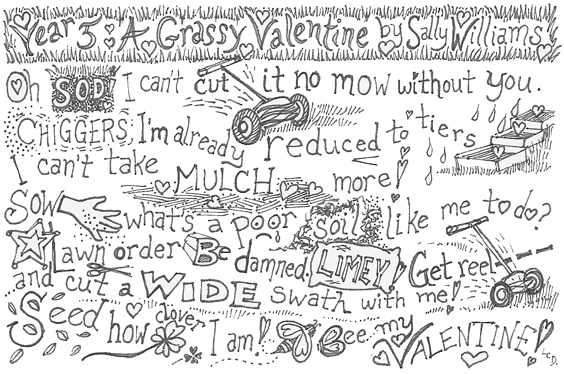 Year 3: A Grassy Valentine by Sally Williams
Oh SOD, I can't cut it no mow without you.
CHIGGERS, I'm already reduced to tiers
I can't take MULCH more!
Sow what's a poor soil like me to do?
Lawn order Be damned. LIMEY! Get reel
and cut a WIDE swath with me!
Seed how clover I am! Bee my VALENTINE!